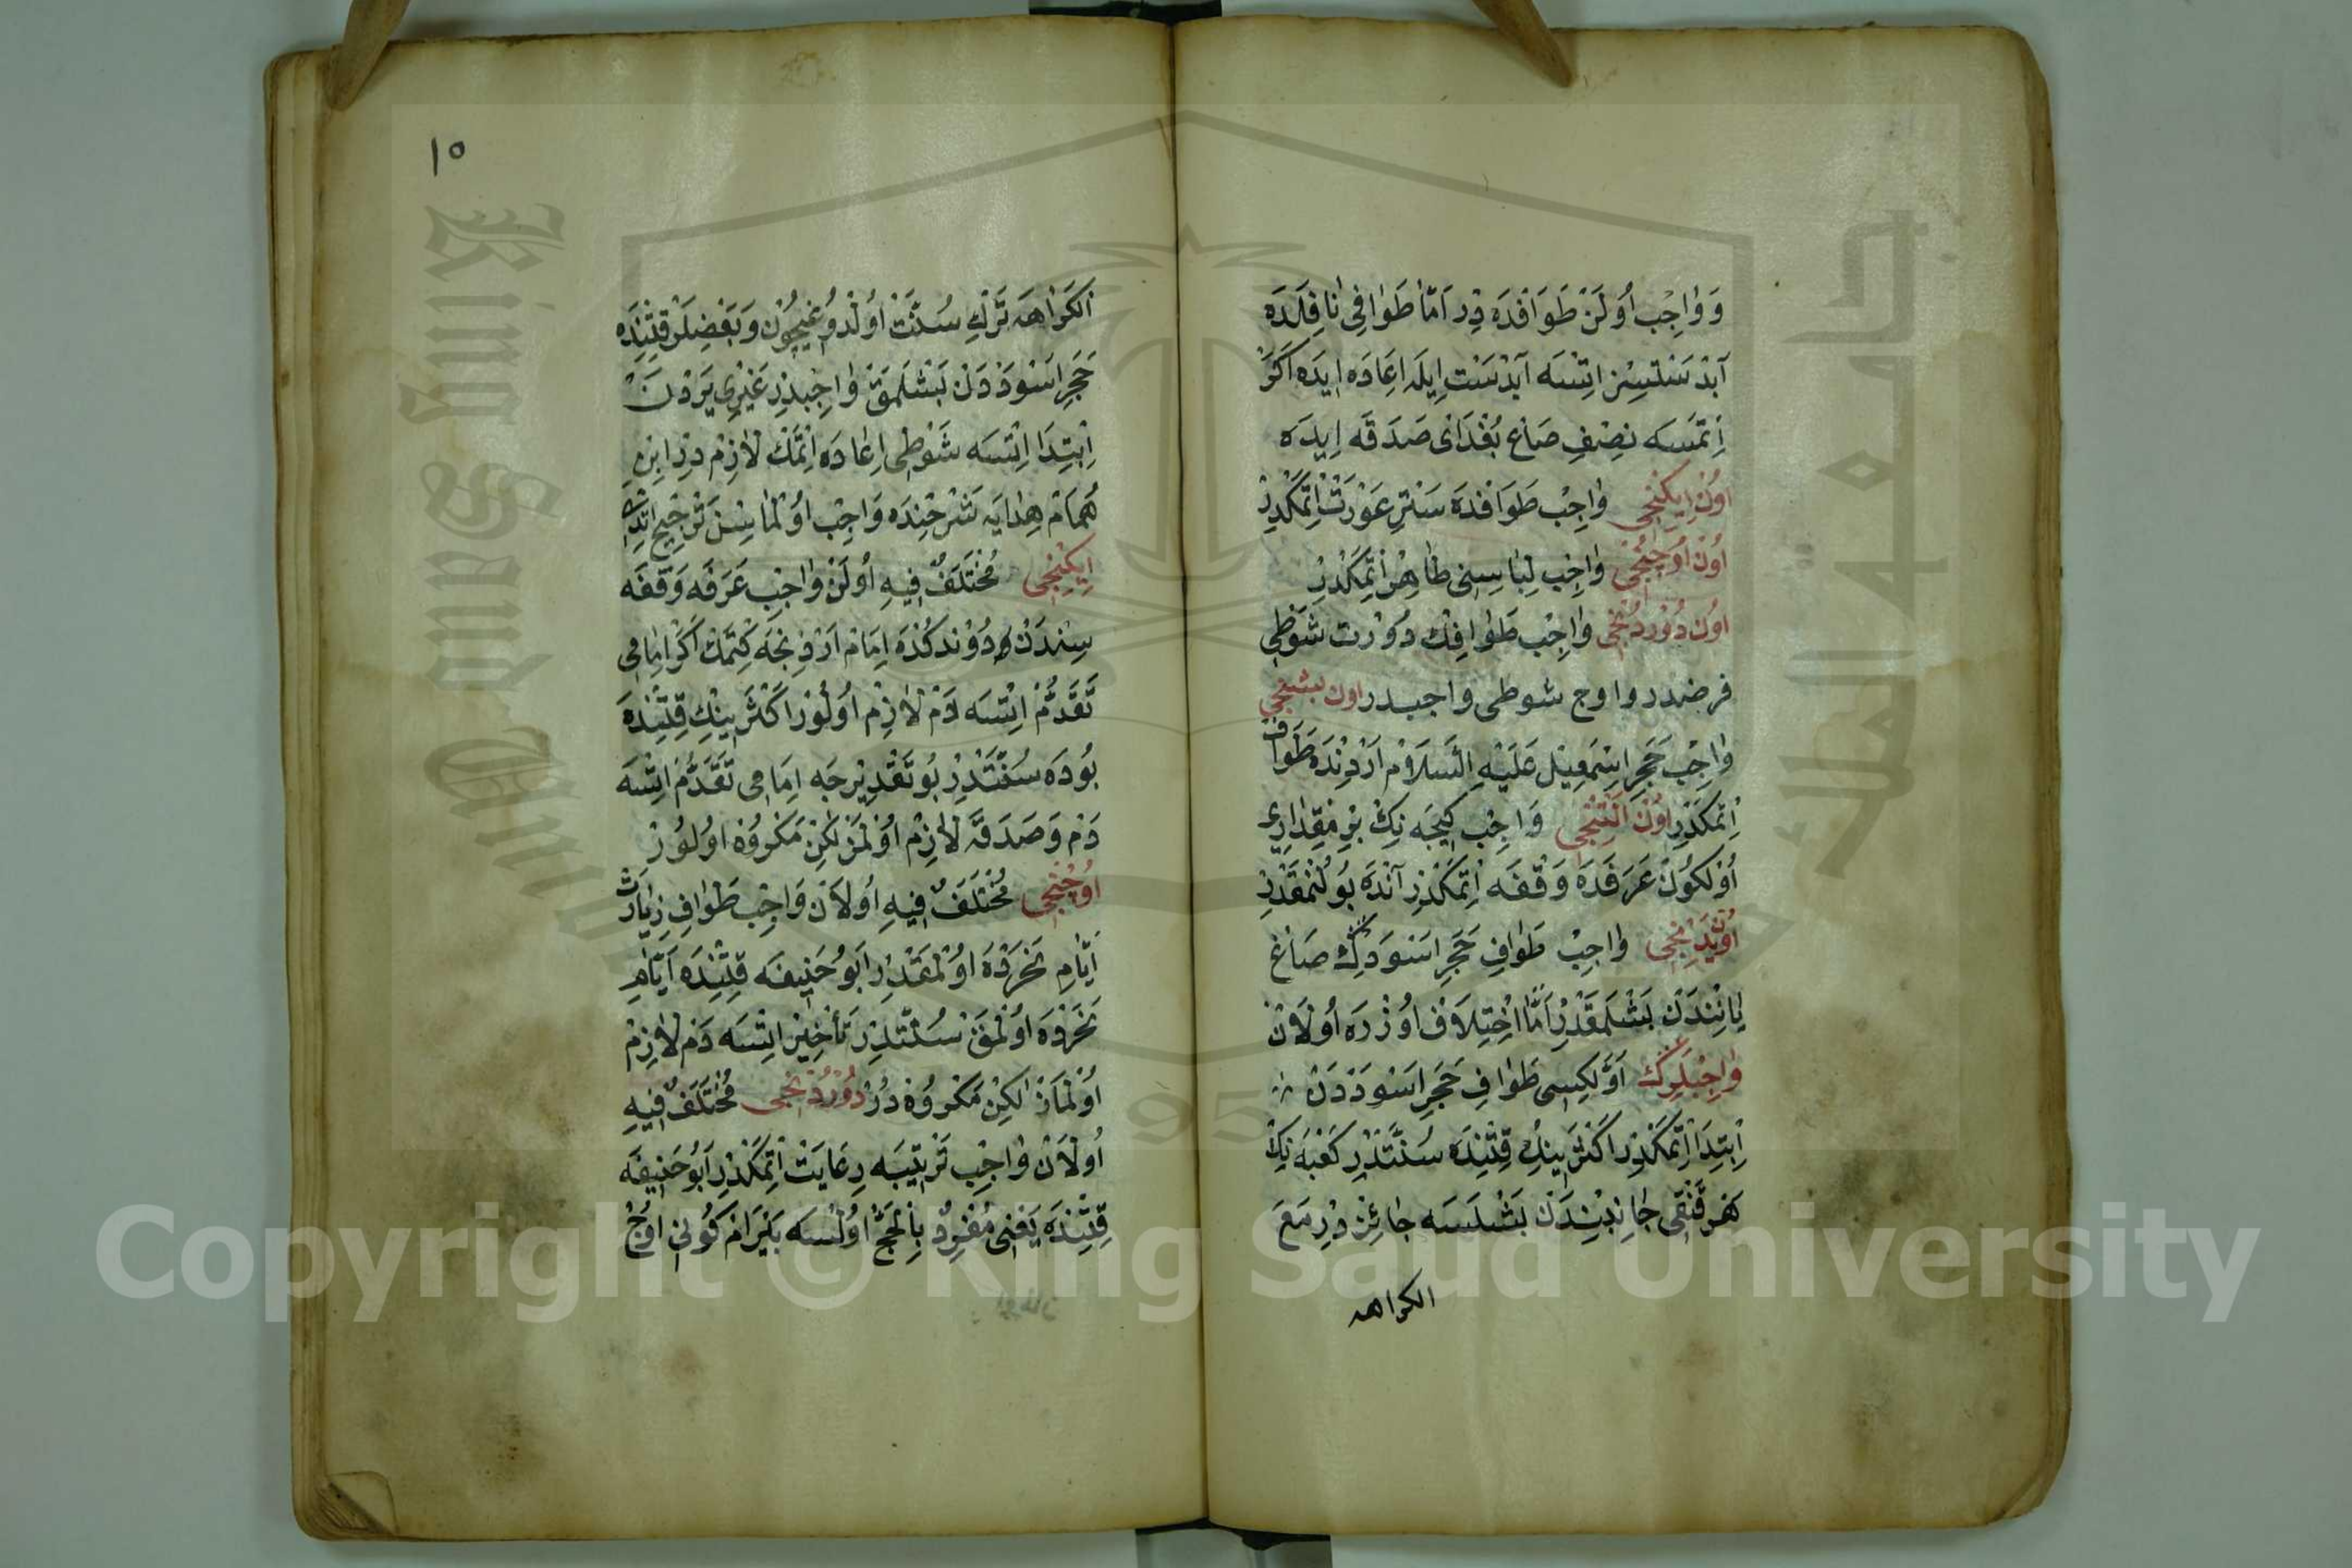 وَوَاجِبْ اُولَنْ طَوَافْدَه دِرْ اَمَّا طَوَافِى نَافِلَدَه
آبْدَسْتْسِزْ اِتْسَه آبْدَسْت اِيلَه اِعَادَه اِيدَه اَكَرْ
اِتْمَسَه نِصْفِ صَاع بُغْدَاىْ صَدَقَه اِيدَه
اُونْ اِيكِنْجِى وَاجِبْ طَوَافْدَه سَتْرِ عَوْرَتْ اِتْمَكْدِرْ
اُونْ اُوچِنْجِى وَاجِبْ لِبَاسِنِى طَاهِرْ اِتْمَكْدِرْ
اُونْ دُورْدُنْجِى وَاجِبْ طَوَافِكْ دُورْت شَوْطِى
فرضدر و اوچ شوطى واجبدر اون بشنجى
وَاجِبْ حَجَرِ اِسْمَعِيلْ عَلَيْهِ السَّلَامْ اَرْدِنْدَه طَوَافْ
اِتْمَكْدِرْ اُونْ اَلْتِنْجِى وَاجِبْ كِيجَه نِكْ بِرْ مِقْدَارِى
اُولْكُونْ عَرَفَدَه وَقْفَه اِتْمَكْدِرْ آنْدَه بُولُنْمَقْدِرْ
اُونْيَدِنْجِى وَاجِبْ طَوَافِ حَجَرِ اَسْوَدِكْ صَاغْ
يَانِنْدَنْ بَشْلَمَقْدِرْ اَمَّا اِخْتِلَافْ اُوزْرَه اُولَانْ
وَاجِبْلَرِكْ اَوَّلكِسِى طَوَافِ حَجَرِ اَسْوَدْدَنْ
اِبْتِدَا اِتْمَكْدِرْ اَكْثَرِينِكْ قِتِنْدَه سُنَّتْدِرْ كَعْبَه نِكْ
هَرْ قَنْقِى جَانِبِنْدَنْ بَشْلَسَه جَائِزْ دِرْ مَعَ
الكراهه
١٥
الكَرَاهَه تَرْكِ سُنَّتْ اُولْدُوغِيچُونْ وَبَعْضِلَرْ قِتِنْدَه
حَجَرِ اَسْوَدْدَنْ بَشْلَمَقْ وَاجِبْدِرْ غَيْرِى يَرْدَنْ
اِبْتِدَا اِتْسَه شَوْطِى اِعَادَه اِتْمَكْ لَازِمْ دِرْ اِبْنِ
هُمَامْ هِدَايَه شَرْحِنْدَه وَاجِبْ اُولْمَاسِنْ تَرْجِيحْ اِتْدِى
اِيكِنْجِى مُخْتَلَفٌ فِيهِ اُولَنْ وَاجِبْ عَرَفَه وَقْفَه
سِنْدَنْ دُونْدكْدَه اِمَامْ اَرْدِنْجَه كِتْمَكْ اَكَرْ اِمَامِى
تَقَدُّمْ اِتْسَه دَمْ لَازِمْ اُولُورْ اَكْثَرِينِكْ قِتِنْدَه
بُودَه سُنَّتْدِرْ بُو تَقْدِيرْجَه اِمَامِى تَقَدُّمْ اِتْسَه
دَمْ وَصَدَقَه لَازِمْ اُولْمَزْ لَكِنْ مَكْرُوهْ اُولُورْ
اُوچُنْجِى مُخْتَلَفٌ فِيهِ اُولَانْ وَاجِبْ طَوَافِ زِيَارَتْ
اَيَّامِ نَحْرَدَه اُولْمَقْدِرْ اَبُو حَنِيفَه قِتِنْدَه اَيَّامِ
نَحْرَدَه اُولْمَقْ سُنَّتْدِرْ تَأْخِيرْ اِتْسَه دَمْ لَازِمْ
اُولْمَازْ لَكِنْ مَكْرُوهْ دُرْ دُورْدُنْجِى مُخْتَلَفٌ فِيهِ
اُولَانْ وَاجِبْ تَرْتِيبَه رِعَايَتْ اِتْمَكْدِرْ اَبُو حَنِيفَه
قِتِنْدَه يَعْنِى مُفْرِدْ بِالْحَجّ اُولْسَه بَيْرَامْ كُونِى اُوچْ
Copyright © King Saud University